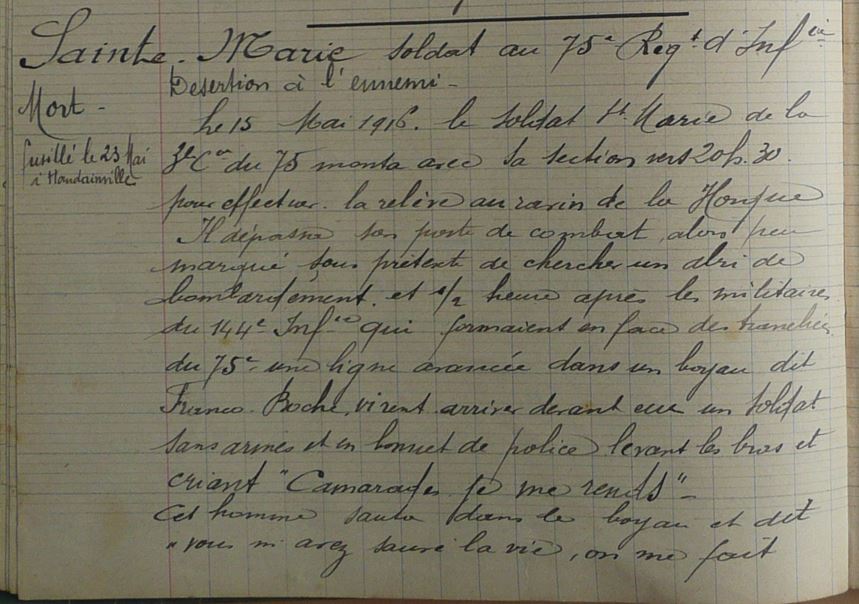 Sainte-Marie soldat au 75e Regt d'Infie
Desertion à l'ennemi -
Mort -
Fusillé le 23 Mai
à Haudainville
Le 15 Mai 1916. le soldat Ste Marie de la
3e Cie du 75 monta avec sa section vers 20h.30.
pour effectuer la relève au ravin de la Horgne
Il dépassa son poste de combat, alors peu
marqué sous prétexte de chercher un abri de
bombardement. et 1/2 heure après les militaires
du 144e Infie qui formaient en face des tranchées
du 75e une ligne avancée dans un boyau dit
Franco-Boche, virent arriver devant eux un soldat
sans armes et en bonnet de police levant les bras et
criant "Camarades je me rends" -
Cet homme sauta dans le boyau et dit
"vous m'avez sauvé la vie, on me fait